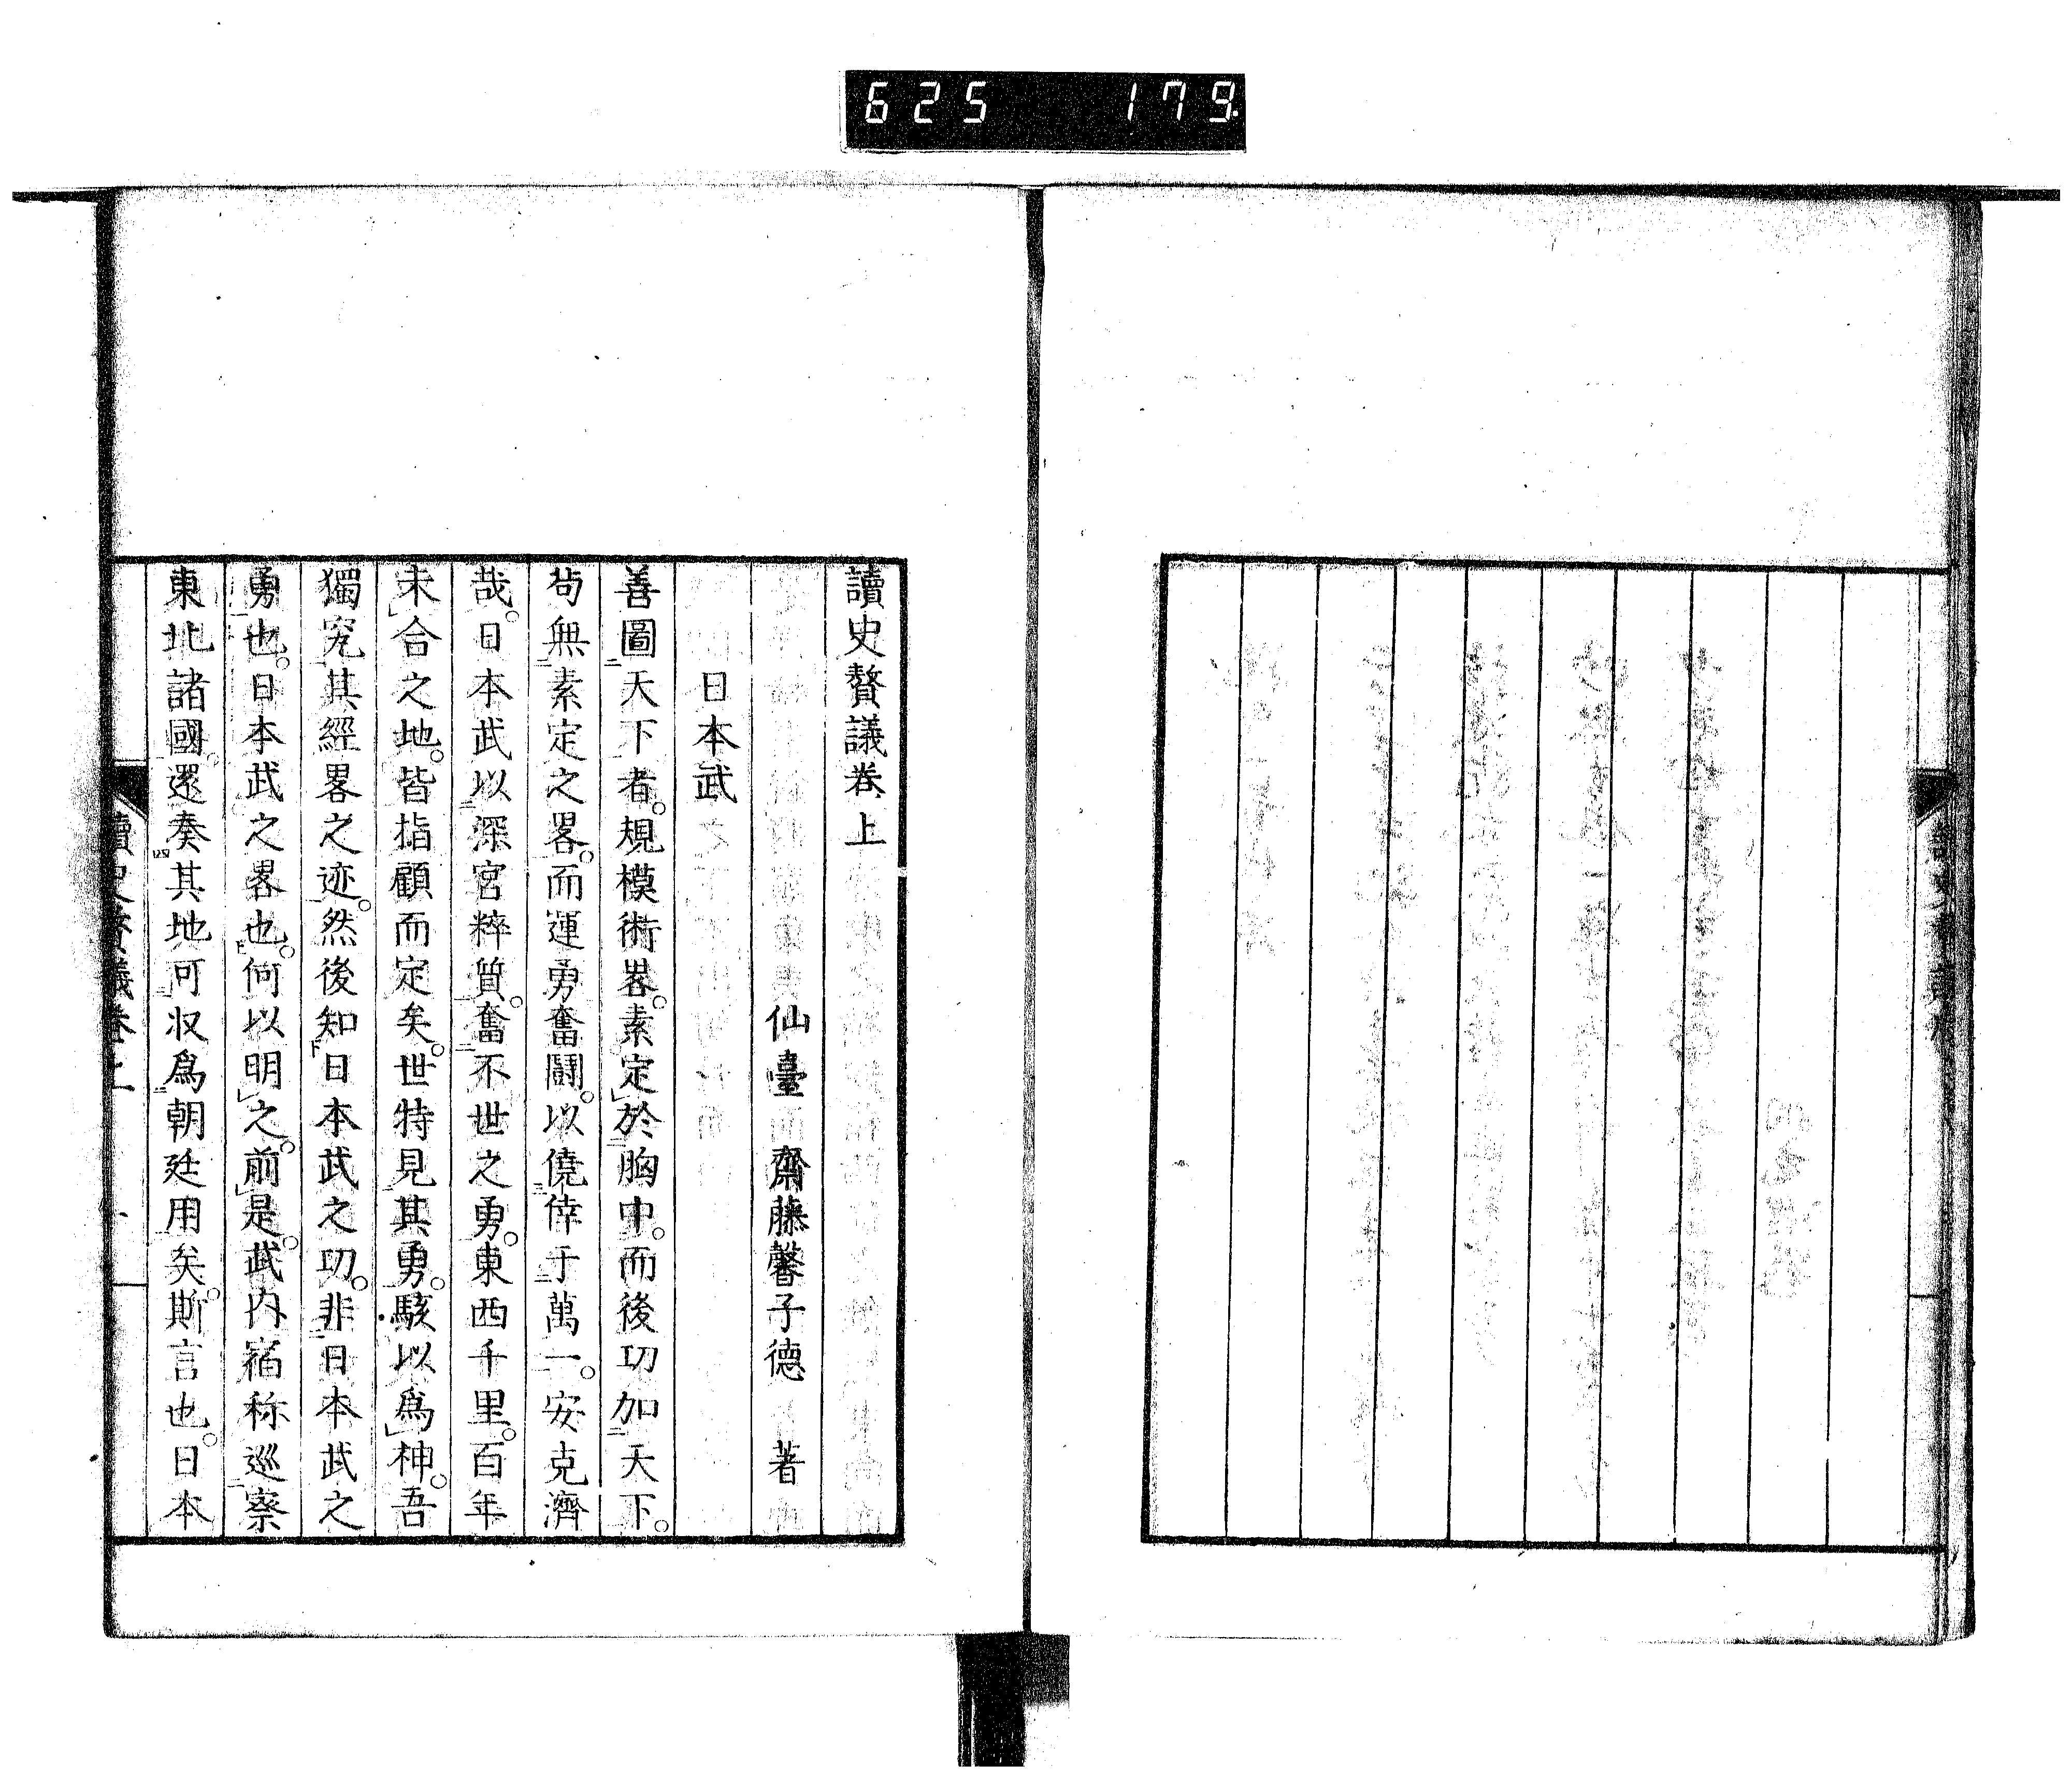 625 179
讀史贅議卷上
仙臺 齋藤馨子德 著
日本武
善圖天下者。規模術畧。素定於胸中。而後功加天下。
苟無素定之畧。而運勇奮鬪。以僥倖于萬一。安克濟
哉。日本武以深宮粹質。奮不世之勇。東西千里。百年
未合之地。皆指顧而定矣。世特見其勇。駭以爲神。吾
獨究其經畧之迹。然後知日本武之功。非日本武之
勇也。日本武之畧也。何以明之。前是。武内宿祢巡察
東北諸國。還奏其地可收爲朝廷用矣。斯言也。日本
讀史贅議卷上 一